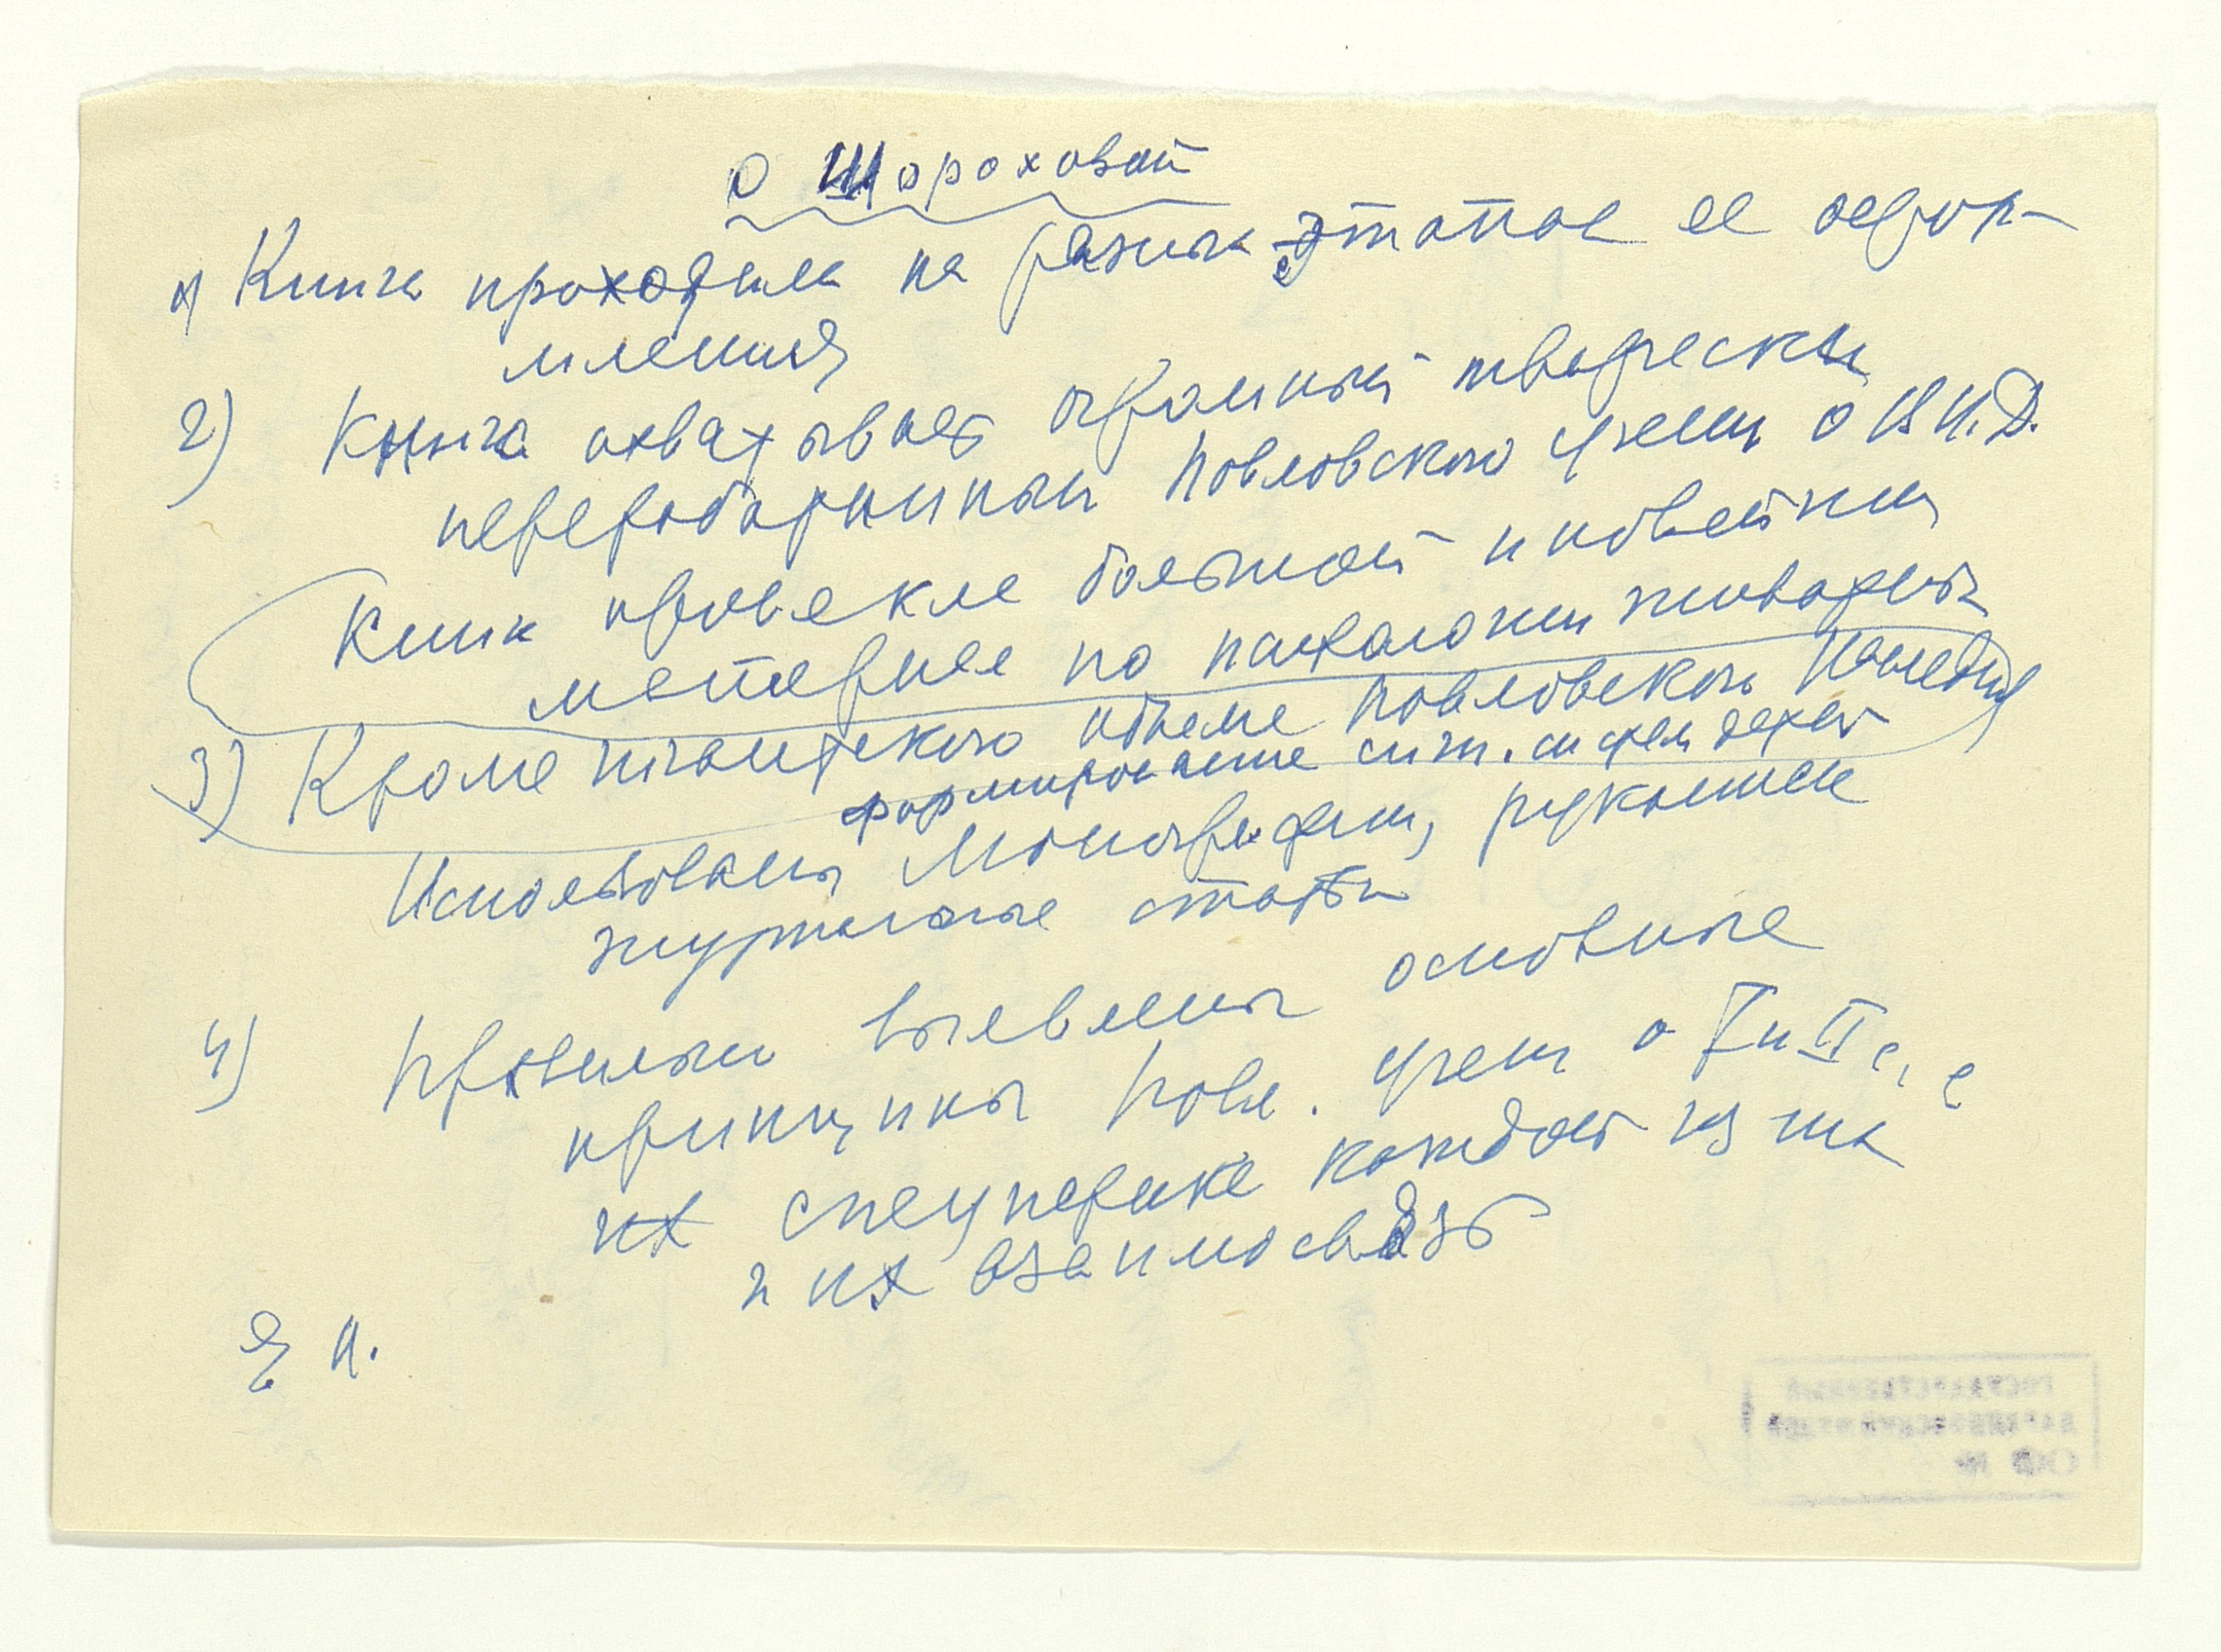 О Шороховой
1) Книга проходила на разных этапах ее оформ-
мления
2) Книга охватывает огромный творчески
переработанный Павловского учения о В.Н.Д.
Книга привлекла большой и новейший
материал по патологии животных
3) Кроме гигантского объема Павловского наследия
формирование сигн. систем
Использованы монография, рукописи
журнальные статьи
4) Правильно выявлены основные
принципы Павл. учения о I и II с. с
их специфике каждой из них
и их взаимосвязь
Я А.